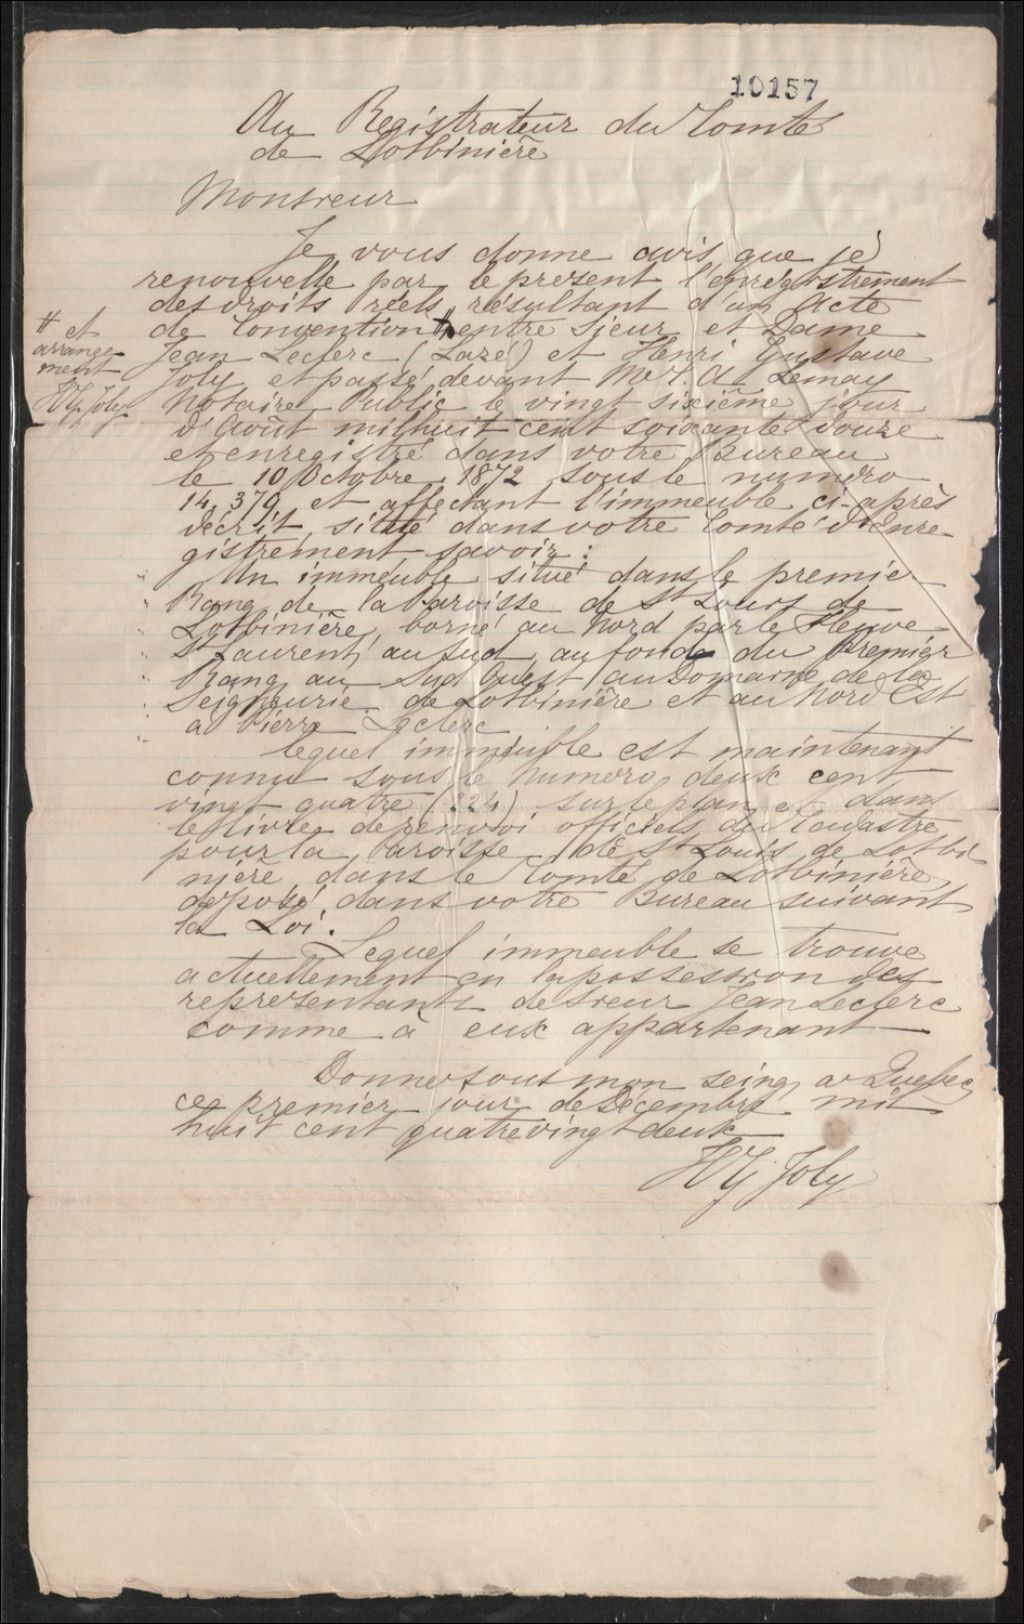 10157
Au Registrateur du Comté
de Lotbinière
Monsieur
Je vous donne avis que je
renouvelle par le present l'enrégistrement
des droits réels résultant d'un Acte
de Convention # entre Sieur et Dame
# et
arrange-
ment
HG Joly
Jean Leclerc (Lazé) et Henri Gustave
Joly et passé devant Mtre. A Lemay
Notaire Public le vingt sixième jour
d'Août mil huit cent soixante douze
et enregistré dans votre Bureau
le 10 Octobre 1872 sous le numéro
14,379 et affectant l'immeuble ci-après
décrit, situé dans votre Comté d'Enre-
gistrement savoir:
" Un immeuble situé dans le premier
" Rang de la Paroisse de St Louis de
" Lotbinière, borné au Nord par le Fleuve
" St Laurent, au Sud au fond du Premier
" Rang au Sud Ouest au Domaine de la
" Seigneurie de Lotbinière et au Nord Est
" à Pierre Leclerc
lequel immeuble est maintenant
connu sous le Numéro deux cent
vingt quatre (224) sur le plan et dans
le livre de renvoi officiels du Cadastre
pour la Paroisse de St Louis de Lotbi
nière dans le Comté de Lotbinière,
déposé dans votre Bureau suivant
la Loi.
Lequel immeuble se trouve
actuellement en la possession des
representants de Sieur Jean Leclerc
comme à eux appartenant
Donner sous mon seing a Quebec
ce premier jour de Décembre mil
huit cent quatre vingt deux
HG Joly